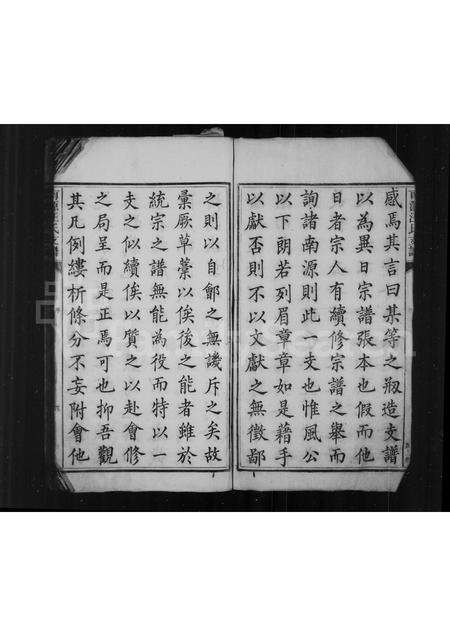 感焉其言曰某等之剏造支譜
以為異日宗譜張本也假而他
日者宗人有續修宗譜之舉而
詢諸南源則此一支也惟風公
以下朗若列眉章章如是藉手
以獻否則不以文獻之無徵鄙
之則以自鄶之無譏斥之矣故
彙厥草藁以俟後之能者雖於
統宗之譜無能為役而特以一
支之似續俟以贋之以赴會修
之局呈而是正焉可也抑吾觀
其凡例縷析條分不妄附會他